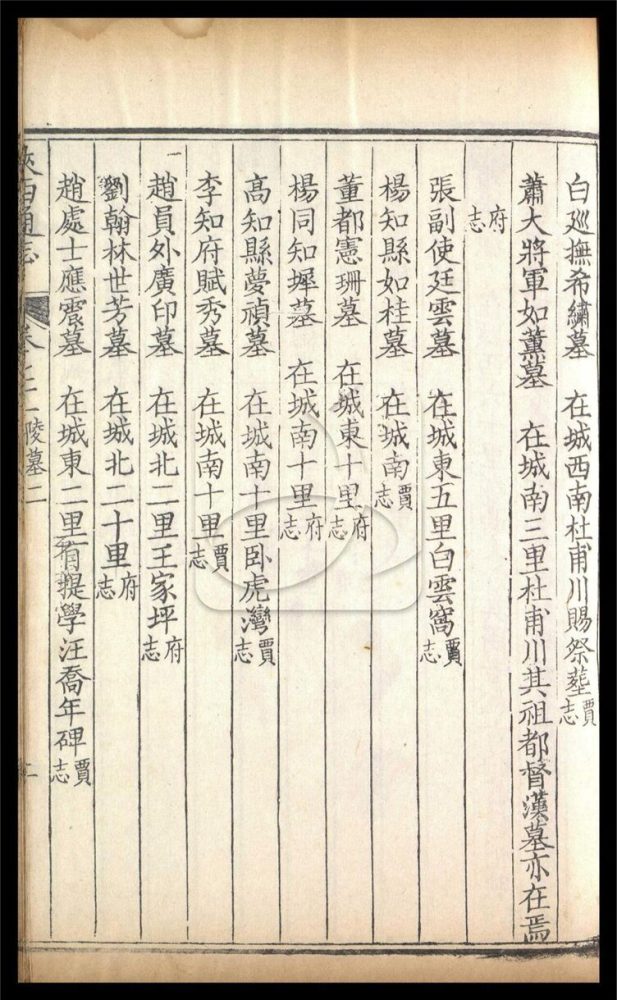 白廵撫希繡墓　在城西南杜甫川賜祭塟賈志
蕭大將軍如薰墓　在城南三里杜甫川其祖都督漢墓亦在焉
府志
張副使廷雲墓　在城東五里白雲窩賈志
楊知縣如桂墓　在城南賈志
董都憲珊墓　在城東十里府志
楊同知墀墓　在城南十里府志
高知縣夢禎墓　在城南十里卧虎灣賈志
李知府賦秀墓　在城南十里賈志
趙員外廣印墓　在城北二里王家坪府志
劉翰林世芳墓　在城北二十里府志
趙處士應震墓　在城東二里有提學汪喬年碑賈志
陜西通志　卷七一陵墓二